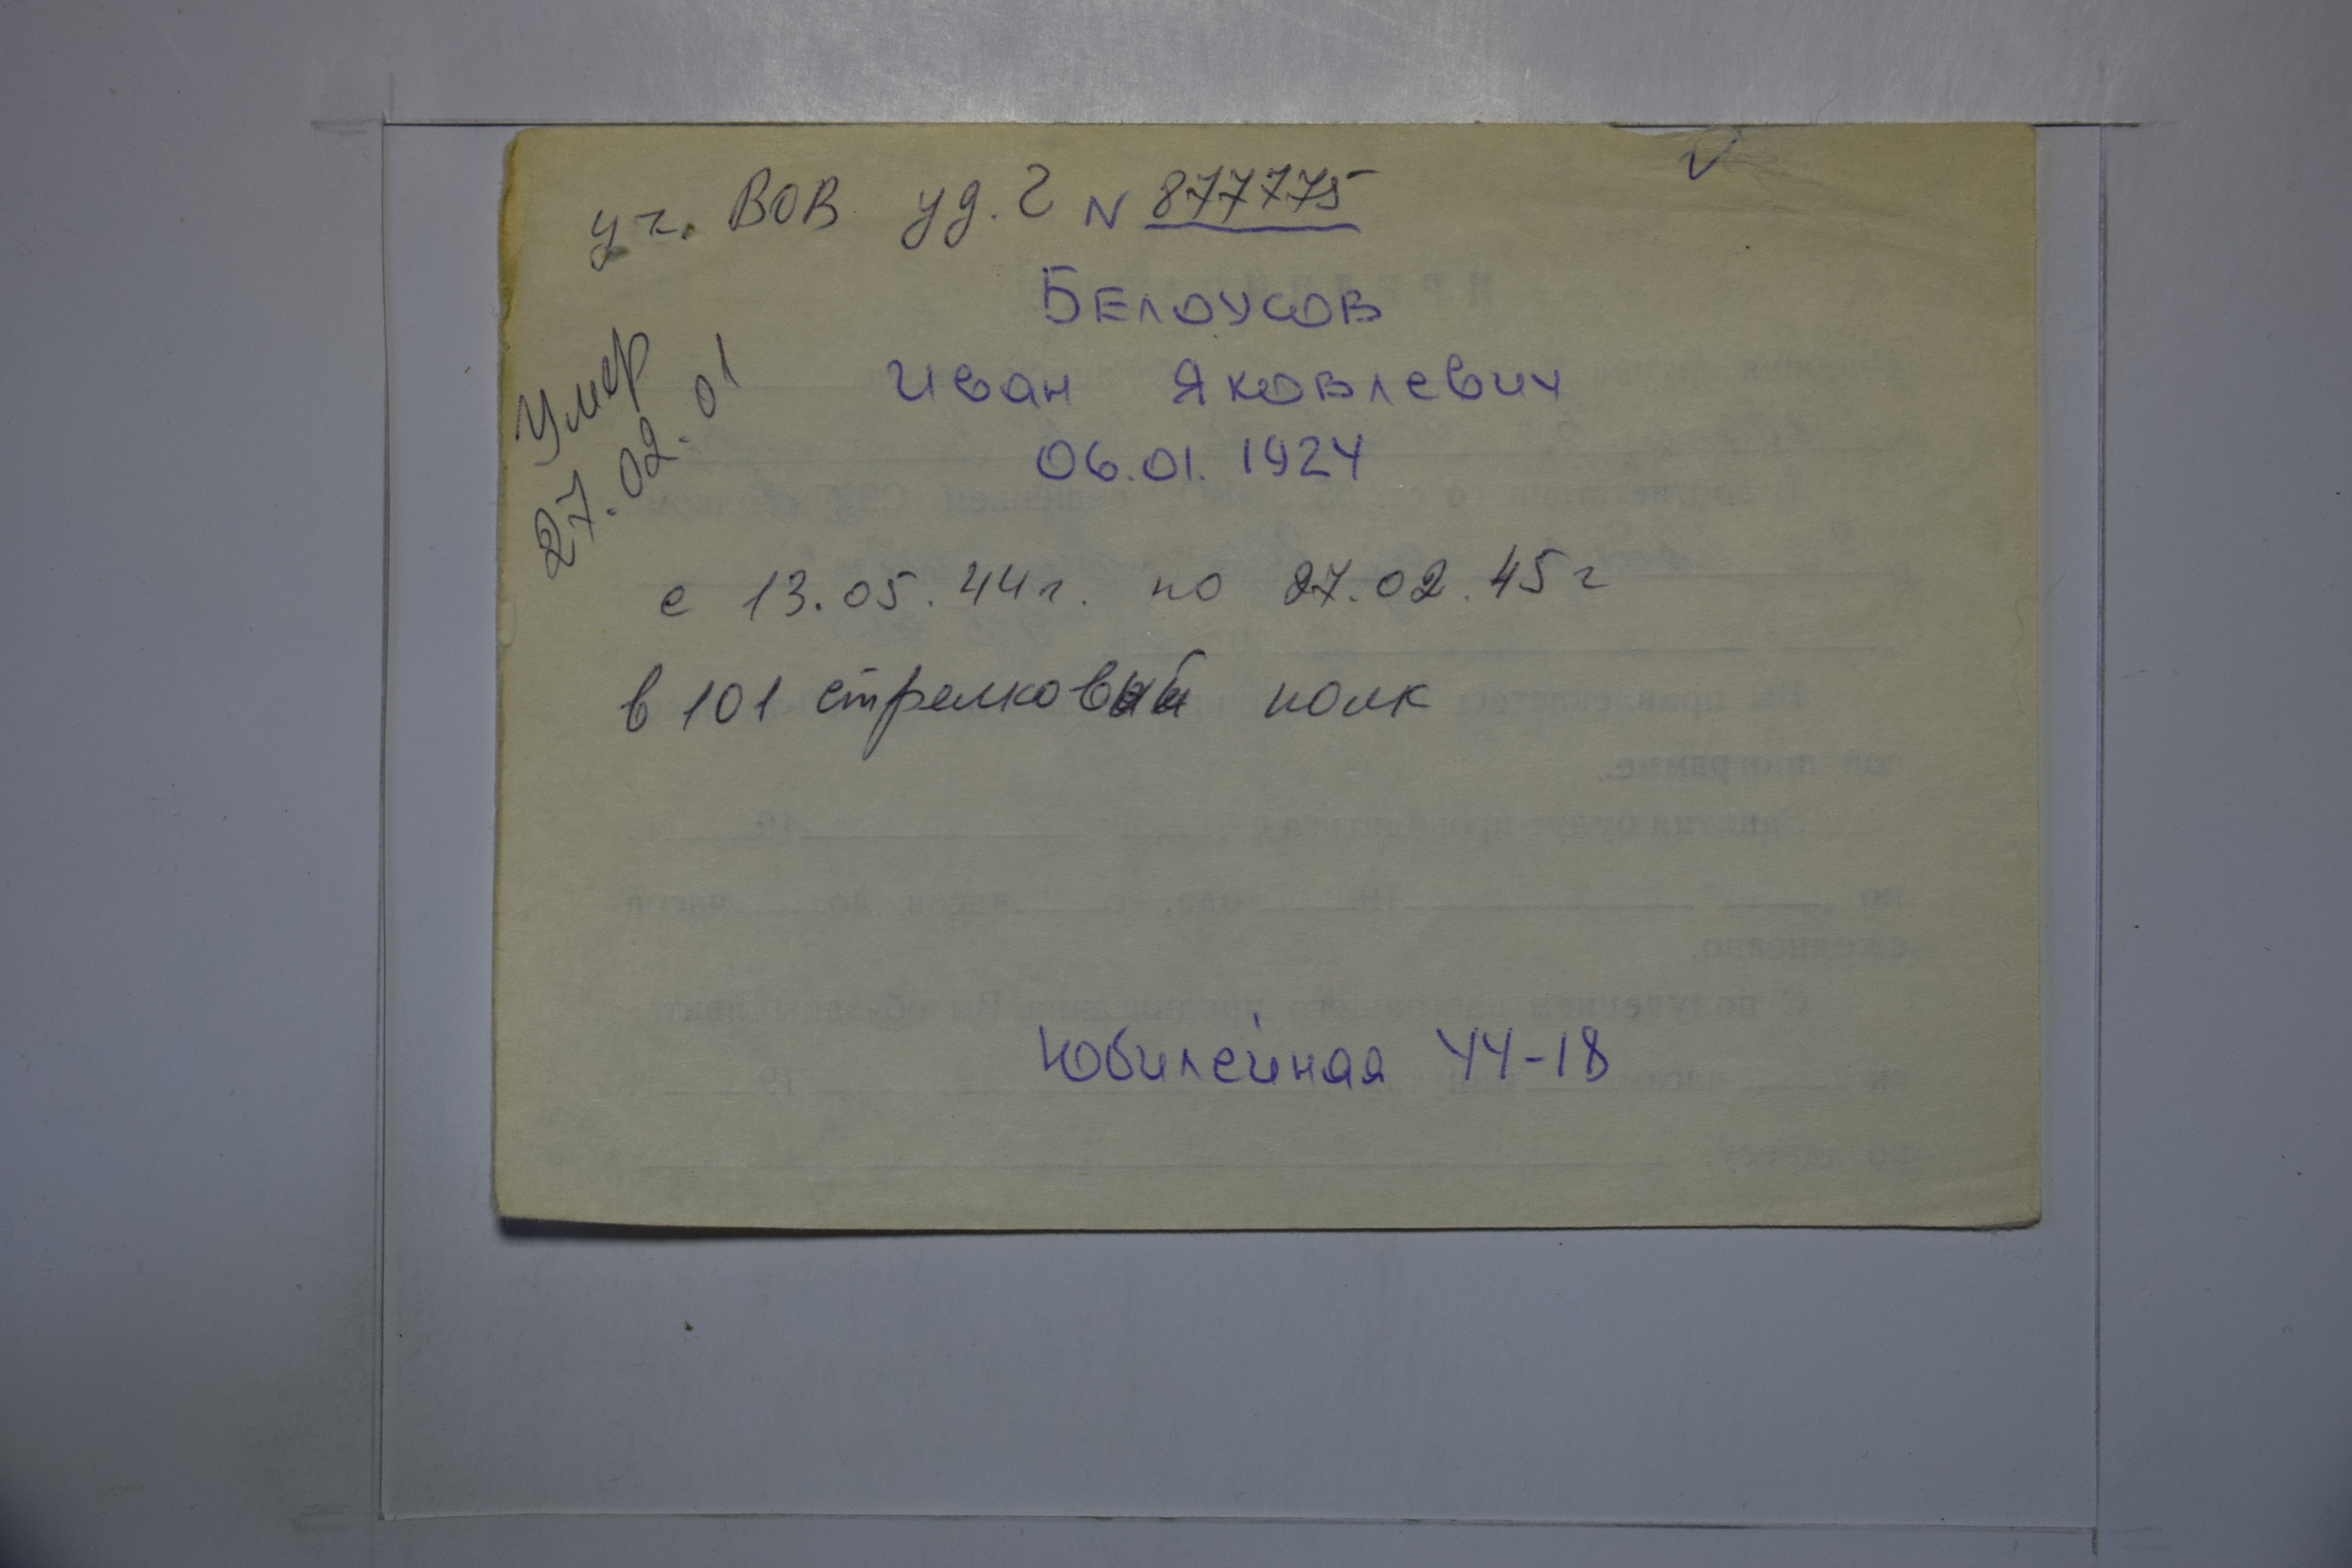 уч. ВОВ уд. Г N 877775
БЕЛОУСОВ
Иван Яковлевич
06.01.1924
Умер
27.02.01
с 13.05.44г. по 27.02.45г
в 101 стрелковый полк
Юбилейная 44-18